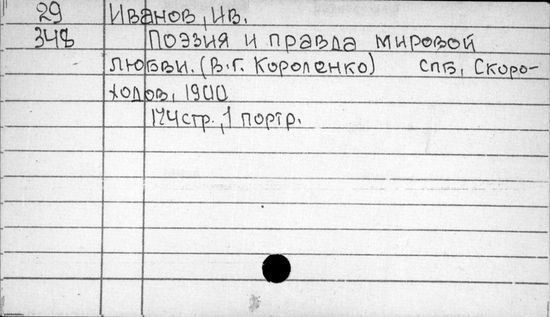 29 Иванов, Ив.
348 Поэзия и правда мировой
любви. (В.Г. Короленко) СПБ, Скоро-
ходов, 1900
124стр., 1 портр.